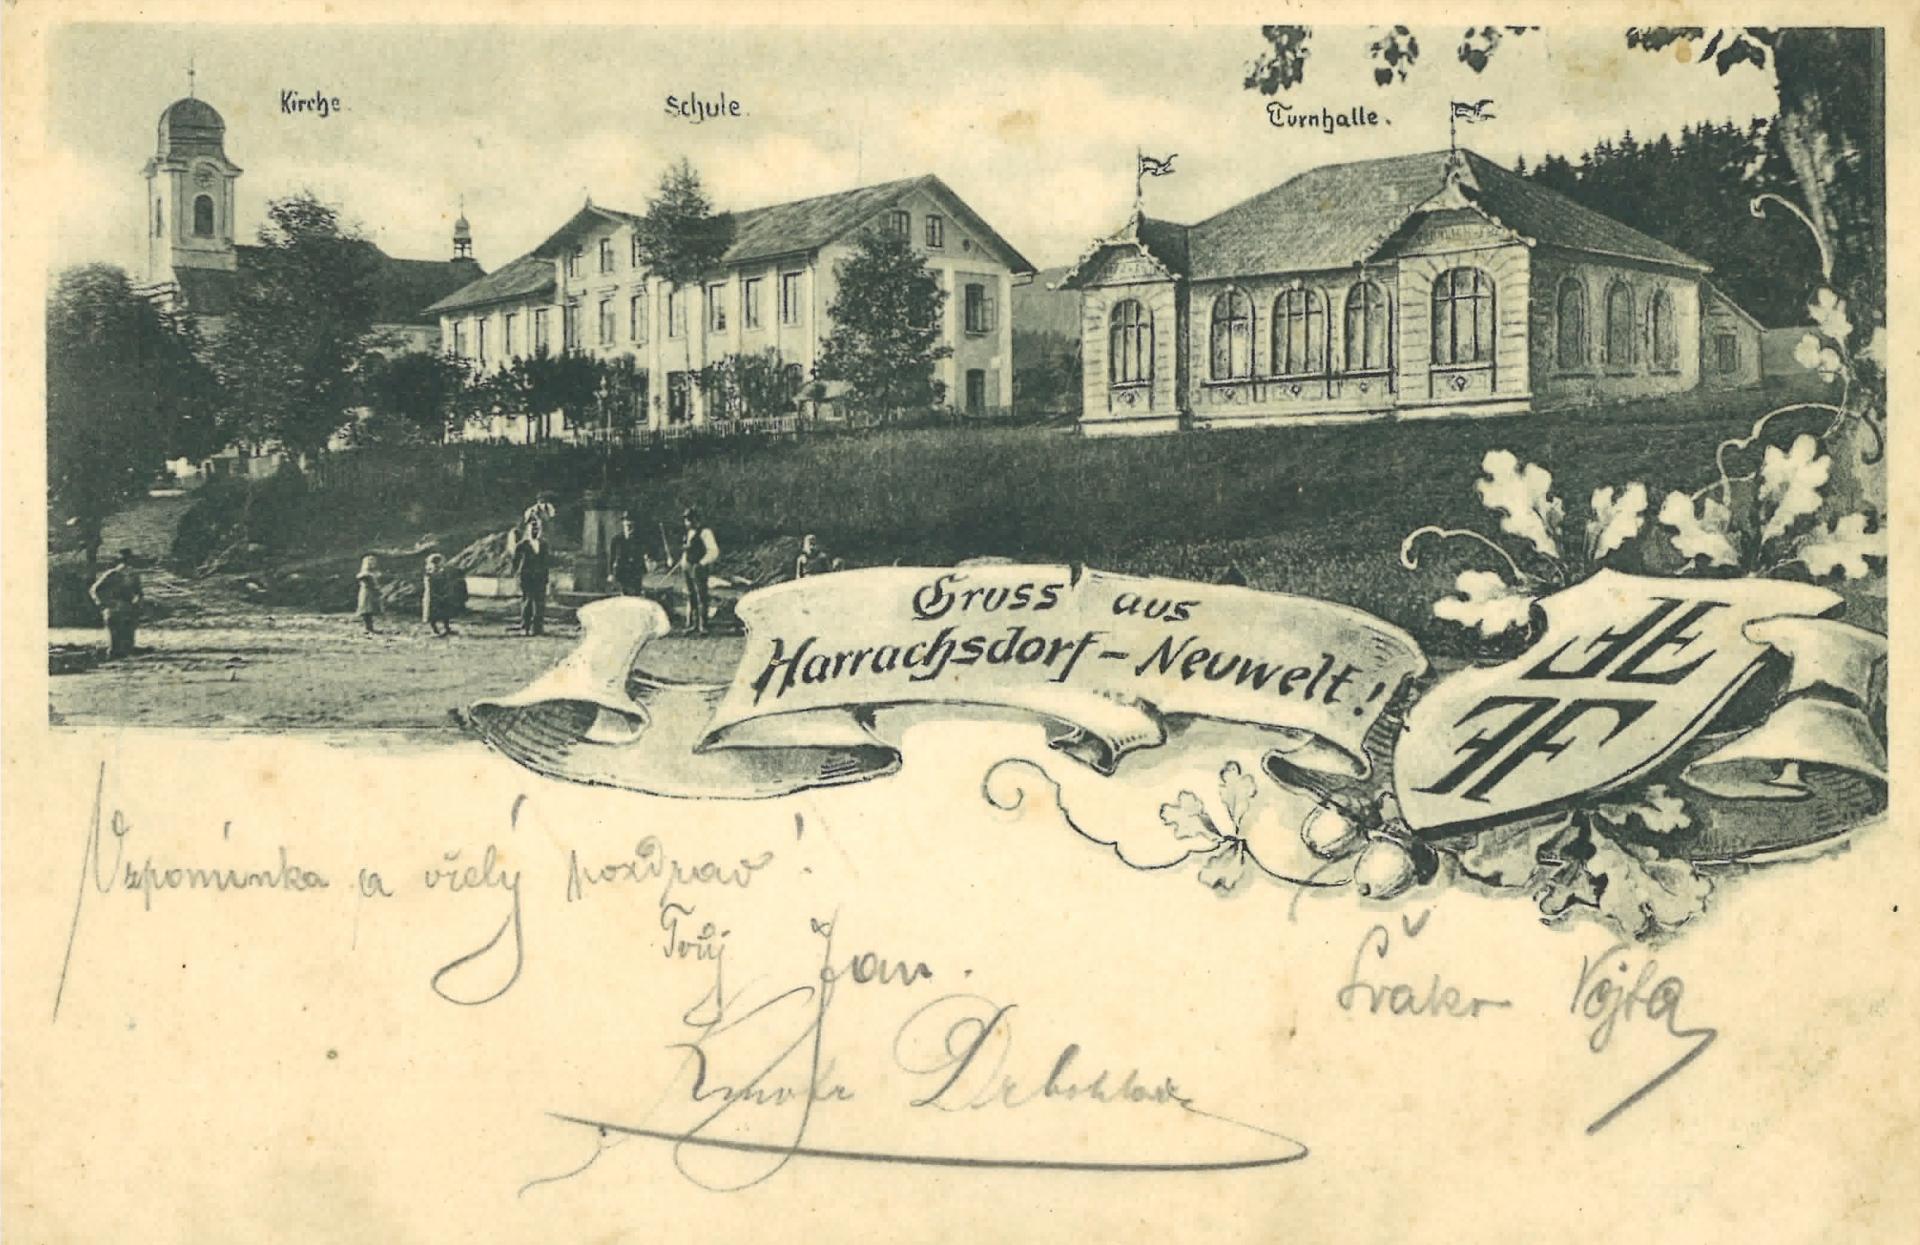 Kirche.
Schule.
Turnhalle.
Gruss aus
Harrachsdorf - Neuwelt!
FF
FF
Vzpomínka a vřelý pozdrav!
Tvůj Jan.
Švakr Vojta